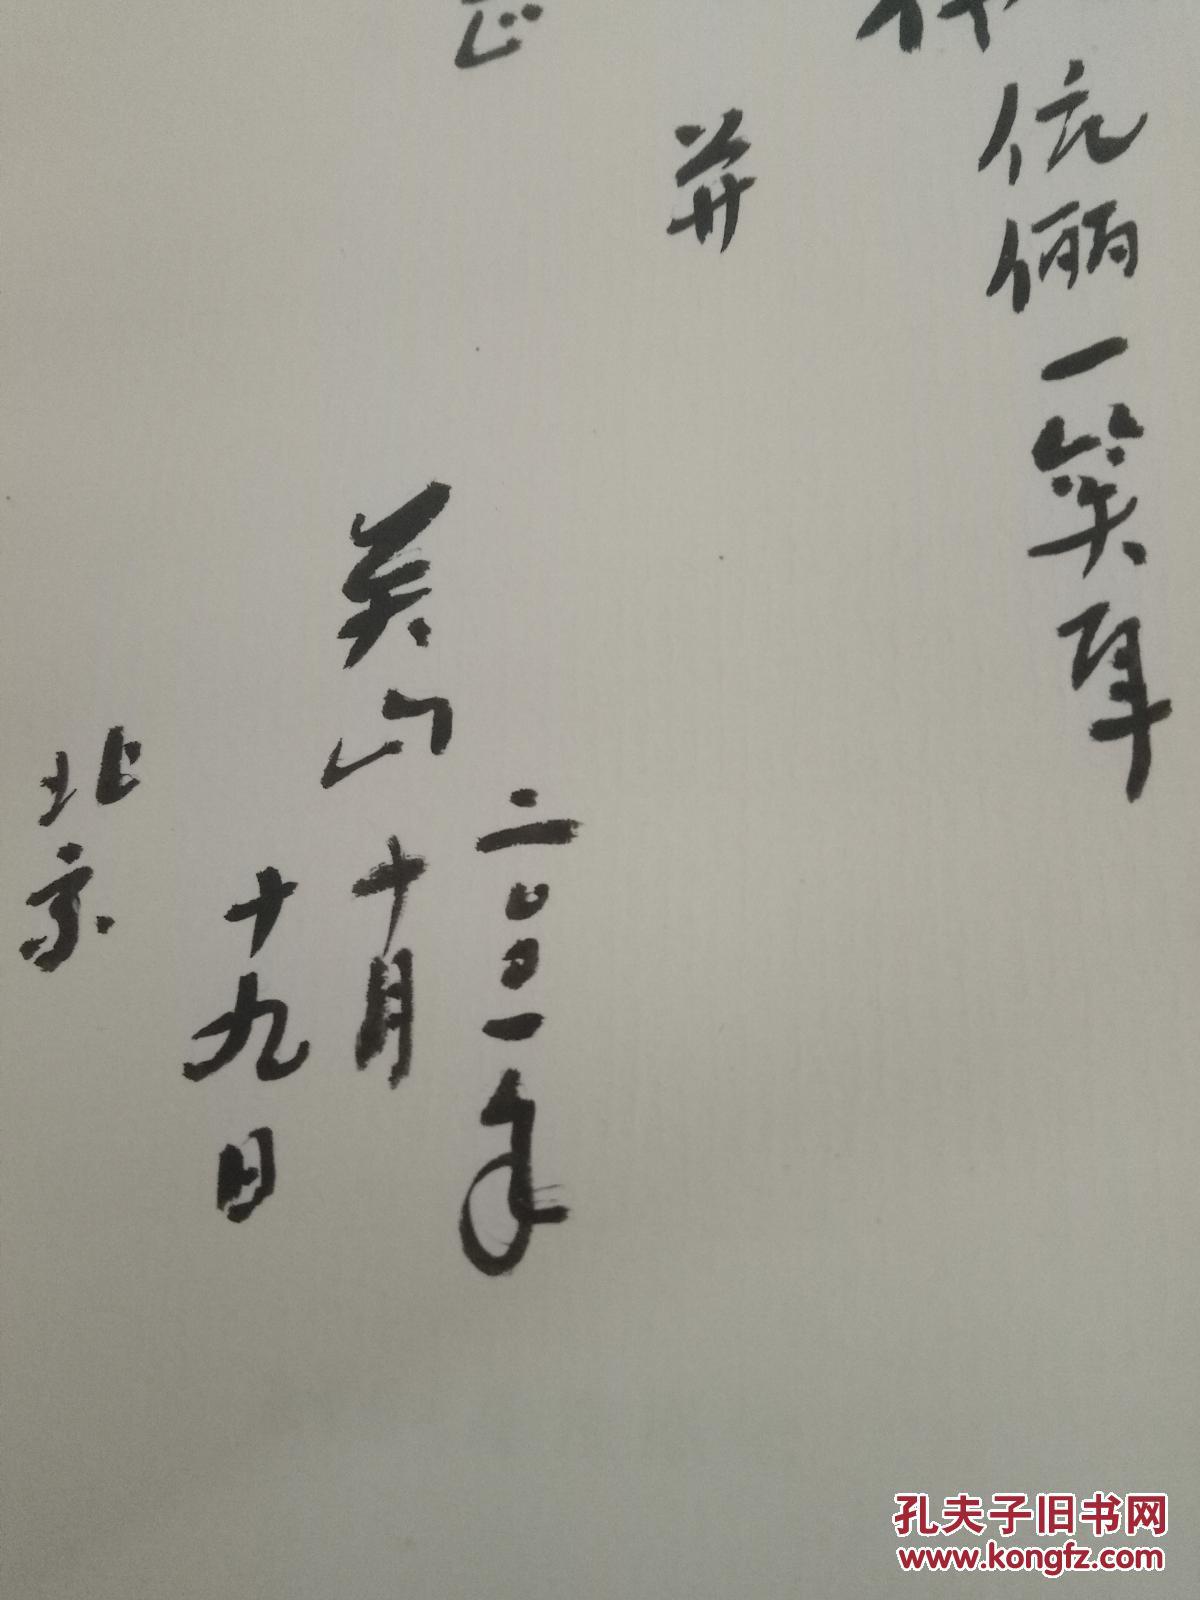 伉俪一笑耳
并
正
二〇〇一年
英山 十月
十九日
北京
孔夫子旧书网
www.kongfz.com